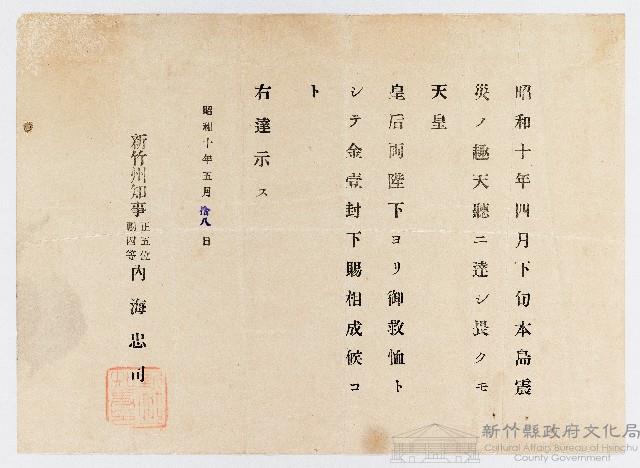 昭和十年四月下旬本島震
災ノ趣天聽ニ達シ畏クモ
天皇
皇后両陛下ヨリ御救恤ト
シテ金壹封下賜相成候コ
ト
右達示ス
昭和十年五月拾八日
新竹州知事正五位勲四等内海忠司
新竹縣政府文化局
Cultural Affairs Bureau of Hsinchu
County Government